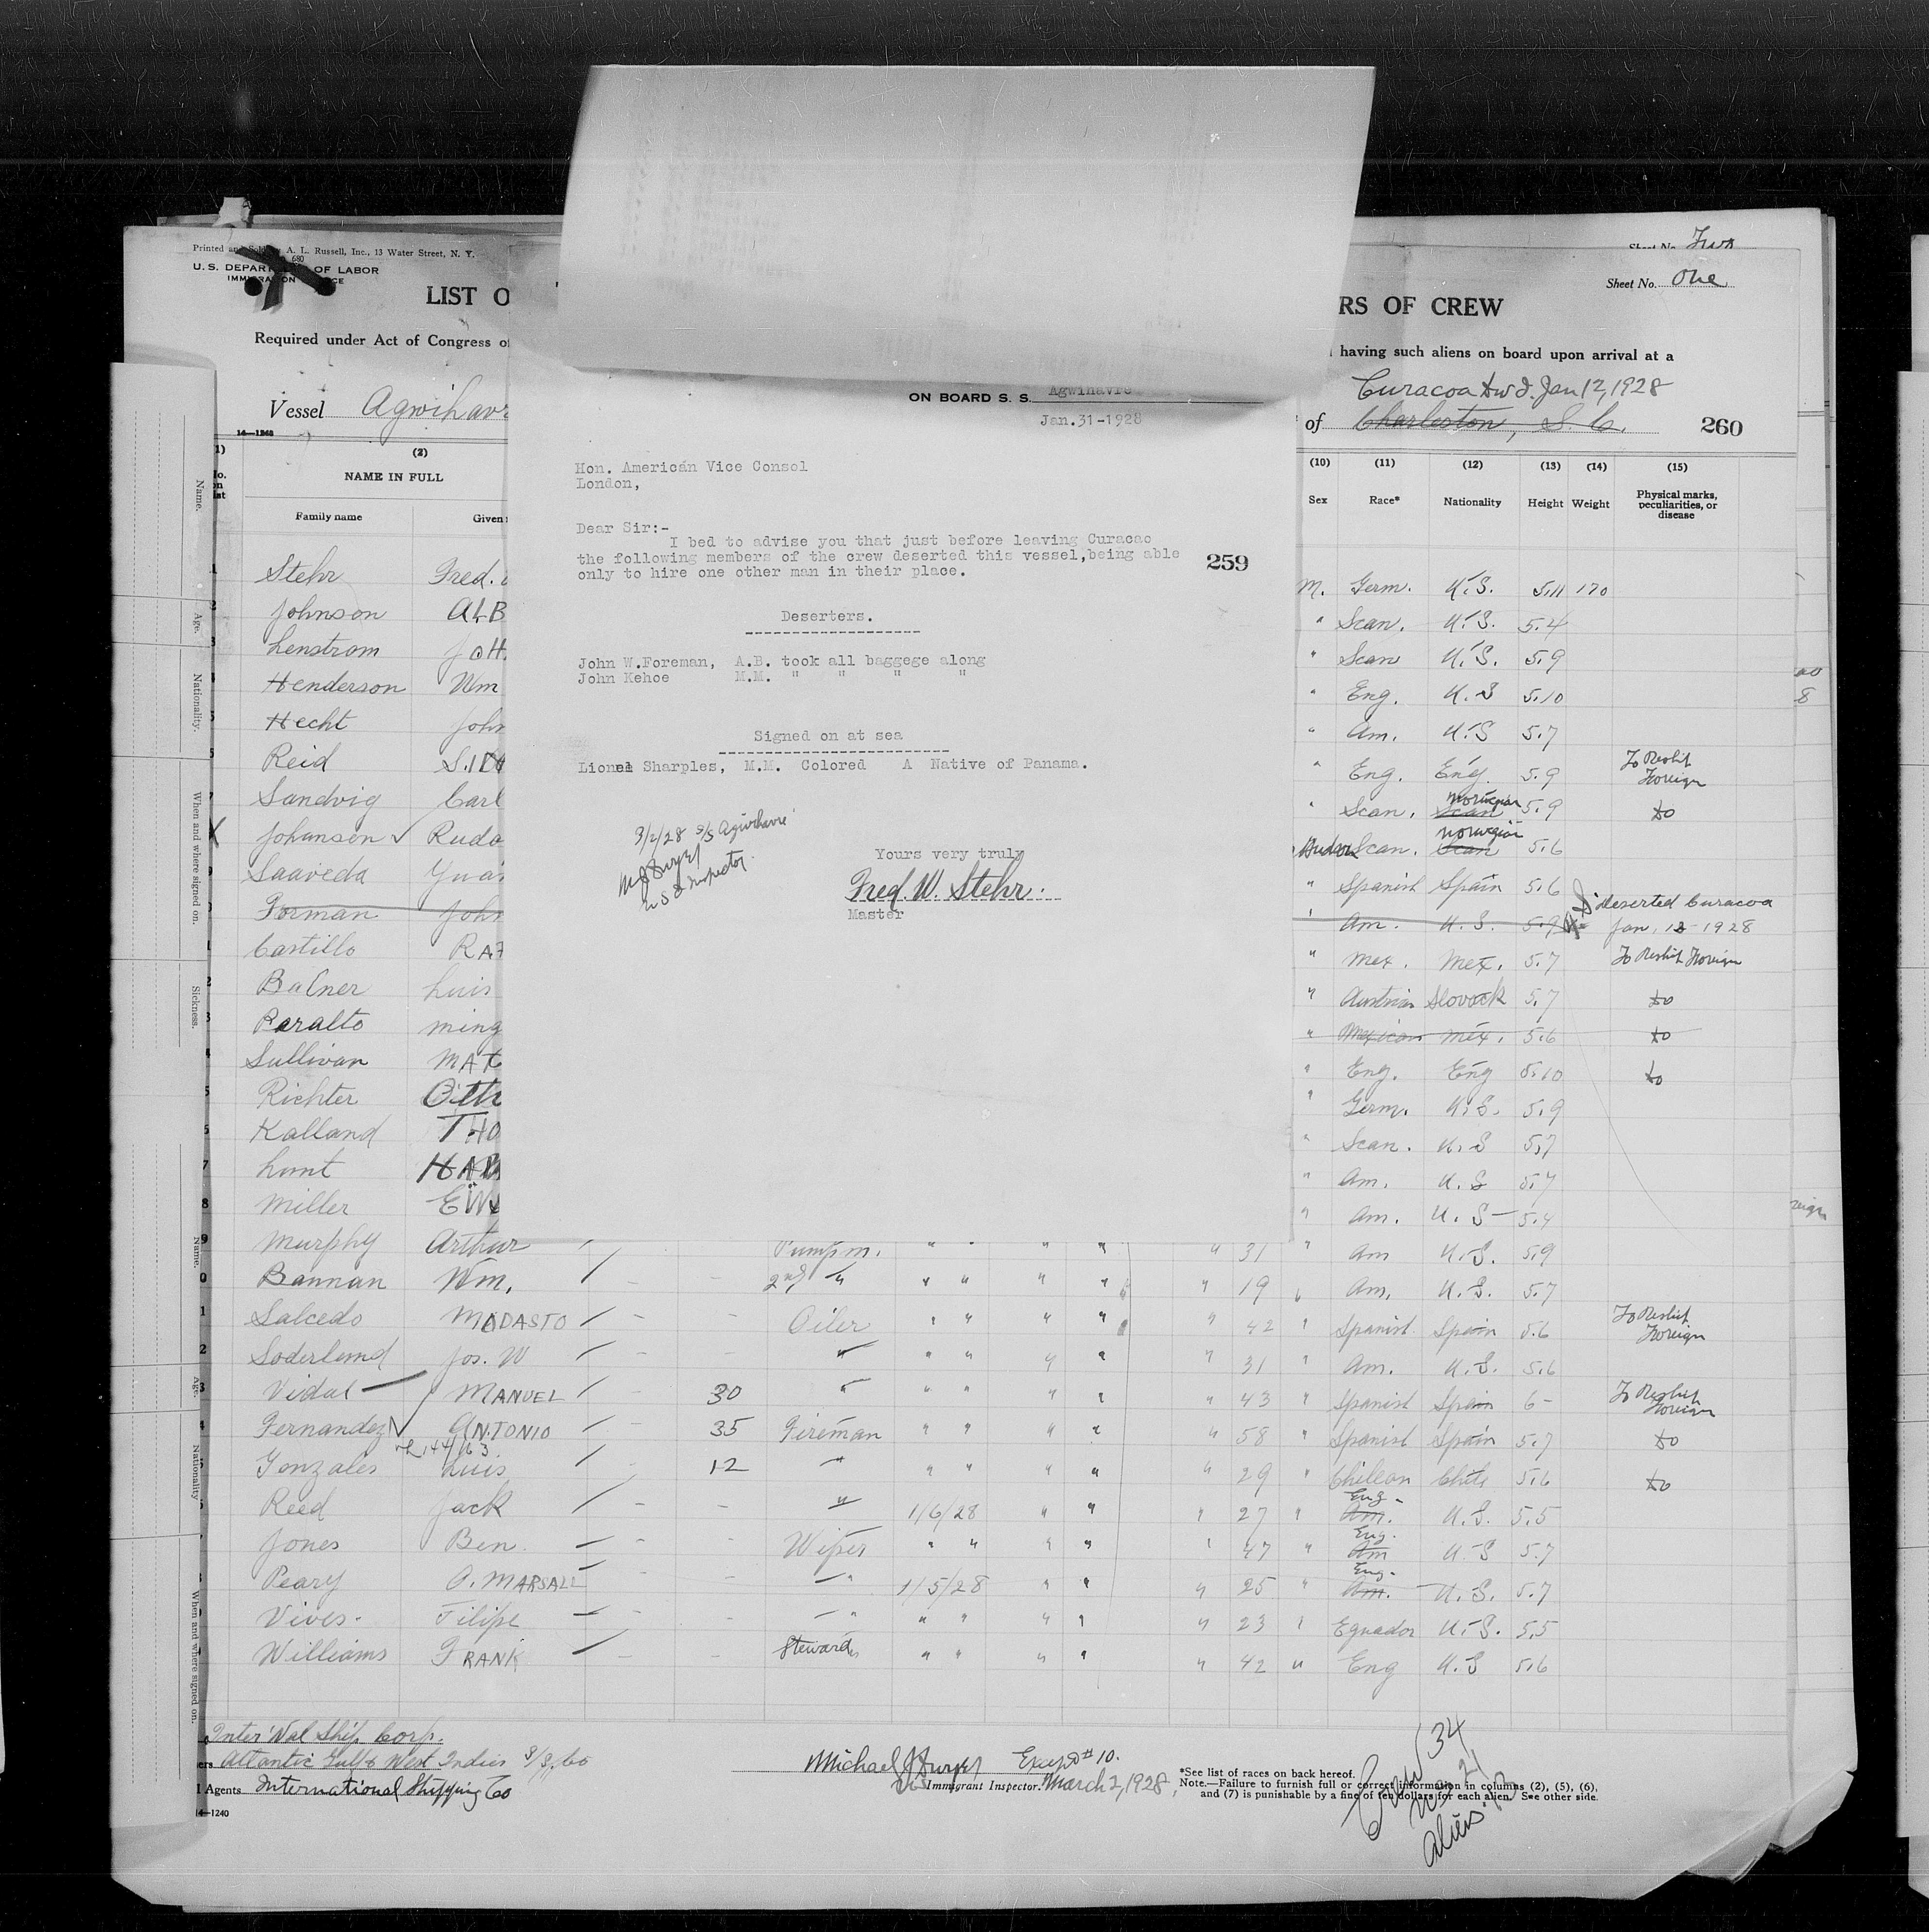 Printed and Sold by A. L. Russell, Inc., 13 Water Street, N. Y.
680
U. S. DEPARTMENT OF LABOR
IMMIGRATION SERVICE
Sheet No. Two
Sheet No. One
LIST O
RS OF CREW
Required under Act of Congress of
having such aliens on board upon arrival at a
Vessel Agwihavr
Curacoa Jan 12, 1928
of Charleston, S. C. 260
14-1240
ON BOARD S. S. Agwihavre
Jan.31-1928
Hon. American Vice Consol
London,
Dear Sir:-
I bed to advise you that just before leaving Curacao
the following members of the crew deserted this vessel,being able
only to hire one other man in their place.
259
Deserters.
John W.Foreman, A.B. took all baggege along
John Kehoe M.M. " " " "
Signed on at sea
Lionel Sharples, M.M. Colored A Native of Panama.
3/2/28 S/S Agwihavre
U S I Inspector.
Yours very truly
Fred. W. Stehr.
Master
(2)
NAME IN FULL
Family name Given
(10) (11) (12) (13) (14) (15)
Sex Race* Nationality Height Weight Physical marks, peculiarities, or disease
Stehr Fred. M. Germ. U.S. 5.11 170
Johnson ALB " Scan. U.S. 5.4
Lenstrom JOH " Scan U.S. 5.9
Henderson Wm " Eng. U.S 5.10
Hecht John " Am. U.S 5.7
Reid SID " Eng. Eng. 5.9 To Reship Foreign
Sandvig Carl " Scan. Scan Norwegian 5.9 do
Johansen Rudo Scan. Scan Norwegian 5.6
Saaveda Yuan " Spanish Spain 5.6
Forman John " Am. U.S. 5.9 Deserted Curacoa Jan. 12-1928
Castillo RAF " Mex. Mex. 5.7 To Reship Foreign
Balner Luis " Austrian Slovack 5.7 do
Peralto Ming " Mexican Mex. 5.6 do
Sullivan MAT " Eng. Eng 5.10 do
Richter Otto " Germ. U.S. 5.9
Kalland THO " Scan. U.S 5.7
Lunt HAR " Am. U.S 5.7
Miller EW " Am. U.S 5.4
Murphy Arthur Pumpm. " " " " " 31 " Am U.S. 5.9
Bannan Wm. 2nd " " " " " " 19 " Am. U.S. 5.7
Salcedo MODASTO Oiler " " " " " 42 " Spanish Spain 5.6 To Reship Foreign
Soderlemd Jos. W " " " " " " 31 " Am. U.S. 5.6
Vidal MANUEL 30 " " " " " " 43 " Spanish Spain 6- To Reship Foreign
Fernandez ANTONIO 35 Fireman " " " " " 58 " Spanish Spain 5.7 do
Gonzales Luis 12 " " " " " " 29 " Chilean Chile 5.6 do
Reed Jack " 1/6/28 " " " 27 " Am. Eng. U.S. 5.5
Jones Ben. Wiper " " " " " 47 " Am Eng. U.S 5.7
Peary O. MARSALL " 1/5/28 " " " 25 " Am. Eng. U.S. 5.7
Vives Filipe " " " " " " 23 " Equador U.S. 5.5
Williams FRANK Steward " " " " " 42 " Eng U.S 5.6
Inter'Nal Ship. Corp.
Atlantic Gulf & West Indies S/S. Co
Agents International Shipping Co
14-1240
Michael J Except #10.
Immigrant Inspector. March 2, 1928
*See list of races on back hereof.
Note.—Failure to furnish full or correct information in columns (2), (5), (6),
and (7) is punishable by a fine of ten dollars for each alien. See other side.
Crew 34
Aliens
Name.
Age.
Nationality.
When and where signed on.
Sickness.
Name.
Age.
Nationality
When and where signed on.